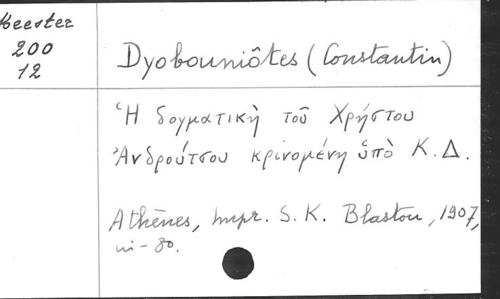 Meester
200
12
Dyobouniôtes (Constantin)
Ἡ δογματικὴ τοῦ Χρήστου
Ἀνδρούτσου κρινομένη ὑπὸ Κ. Δ.
Athènes, Impr. S. K. Blastou, 1907,
in-8o.